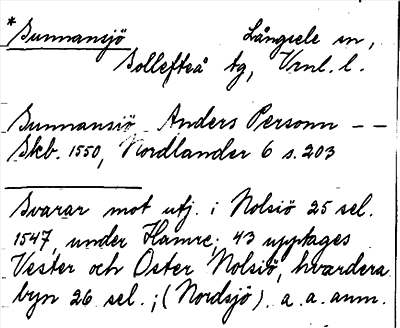 *Sunnansjö Långsele sn,
Sollefteå tg, Vrnl. l.
Sunnansiö Anders Personn – –
Skb. 1550, Nordlander 6 s. 203
Svarar mot utj. i Nolsiö 25 sel.
1547, under Hamre; 43 upptages
Vester och Öster Nolsiö, hvardera
byn 26 sel.; (Nordsjö). a. a. anm.